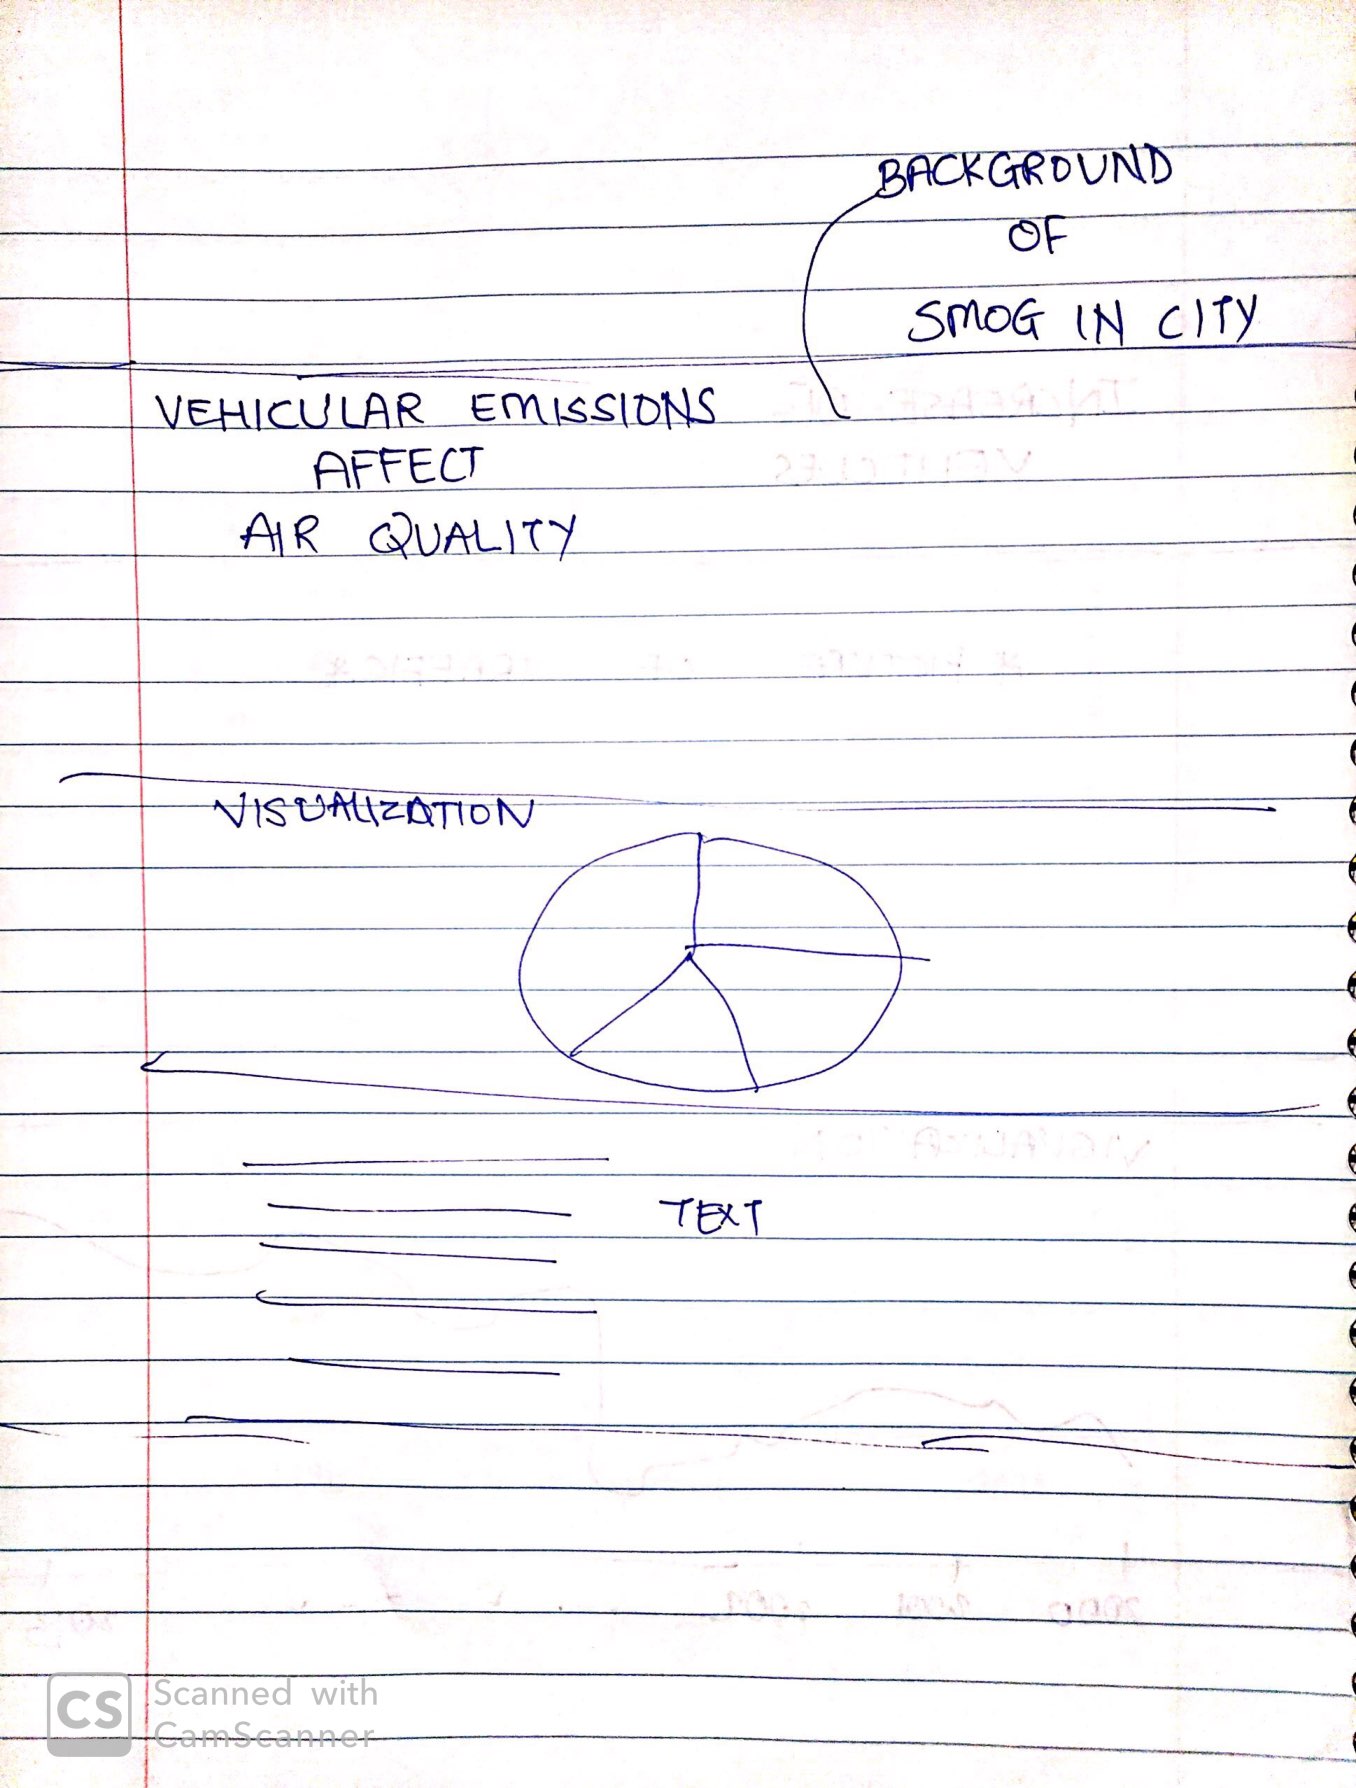 BACKGROUND
OF
SMOG IN CITY
VEHICULAR EMISSIONS
AFFECT
AIR QUALITY
VISUALIZATION
TEXT
CS Scanned with
CamScanner